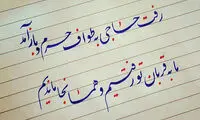 رفت حاجی به طواف حرم و باز آمد
ما به قربان تو رفتیم و همانجا ماندیم